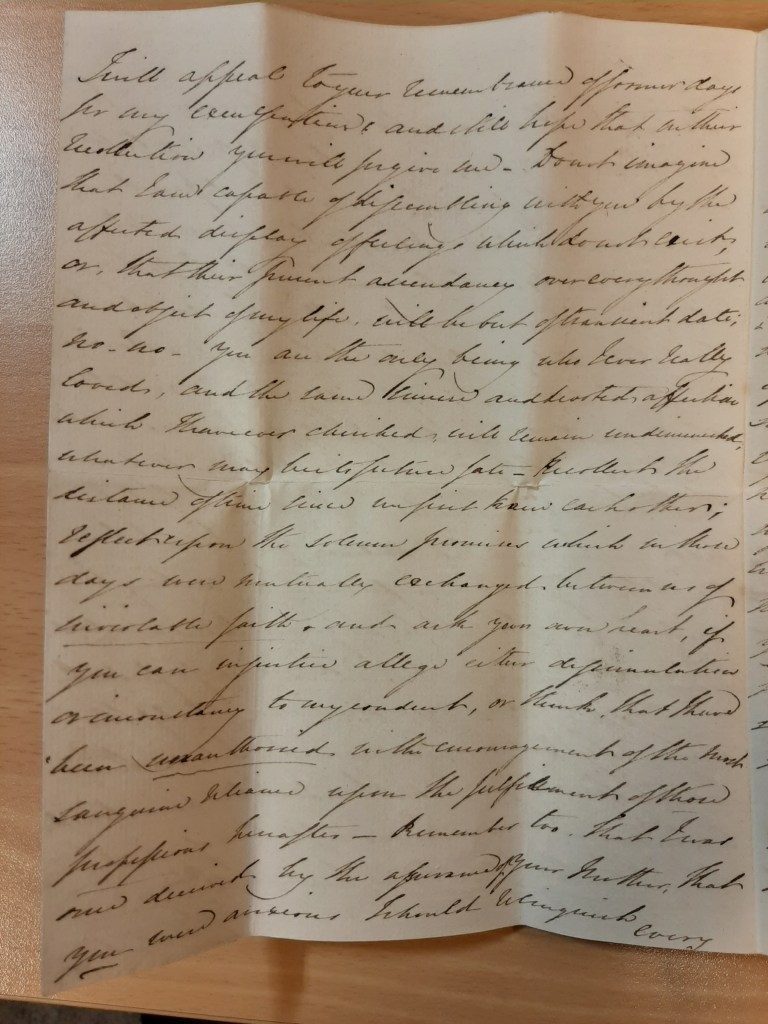 I will appeal to your remembrance of former days
for my exculpation & and still hope that in their
recollection you will forgive me - Do not imagine
that I am capable of dissembling with you by the
affected display of feelings which do not exist,
or, that their present ascendancy over every thought
and object of my life, will be but of transient date;
no - no - you are the only being who I ever really
loved, and the same sincere and devoted affection
which I have ever cherished, will remain undiminished,
whatever may be its future fate - Recollect the
distance of time since we first knew each other;
reflect upon the solemn promises which in those
days were mutually exchanged between us of
inviolable faith, and ask your own heart, if
you can in justice allege either dissimulation
or inconstancy to my conduct, or think, that I have
been unauthorised in the encouragement of the most
sanguine reliance upon the fulfillment of those
professions hereafter - Remember too, that I was
once deceived by the assurance of your Mother, that
you were anxious I should relinquish every